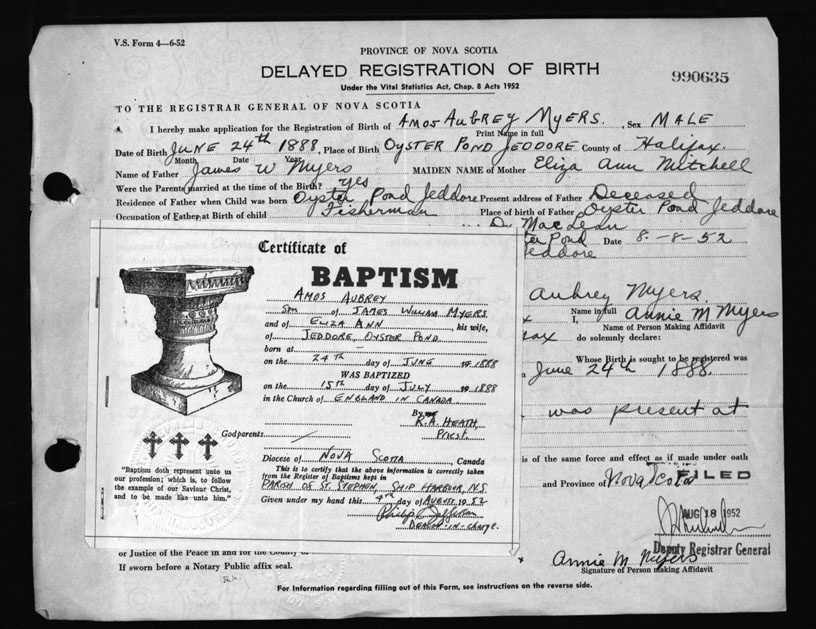 V.S. Form 4—6-52
PROVINCE OF NOVA SCOTIA
DELAYED REGISTRATION OF BIRTH
990635
Under the Vital Statistics Act, Chap. 8 Acts 1952
TO THE REGISTRAR GENERAL OF NOVA SCOTIA
A. I hereby make application for the Registration of Birth of AMOS AUBREY MYERS. , Sex MALE
Print Name in full
Date of Birth JUNE 24th 1888, Place of Birth OYSTER POND JEDDORE County of Halifax.
Month Date Year
Name of Father James W Myers MAIDEN NAME of Mother Eliza Ann Mitchell
Were the Parents married at the time of the Birth? yes
Residence of Father when Child was born Oyster Pond Jeddore Present address of Father Deceased
Occupation of Father at Birth of child Fisherman Place of birth of Father Oyster Pond Jeddore
Dr MacLean
ter Pond Date 8-8-52
Jeddore
Certificate of
BAPTISM
AMOS AUBREY
Son of JAMES WILLIAM MYERS
and of ELIZA ANN , his wife,
of JEDDORE, OYSTER POND
born at —
on the 24TH day of JUNE 1888
WAS BAPTIZED
on the 15TH day of JULY 1888
in the Church of ENGLAND IN CANADA
By
R.A. HEATH,
Priest.
Godparents /
Diocese of NOVA SCOTIA , Canada
This is to certify that the above information is correctly taken
from the Register of Baptisms kept in
PARISH OF ST. STEPHEN, SHIP HARBOUR, N.S.
Given under my hand this 4th day of AUGUST 1952
Philip Jefferson
DEACON-IN-CHARGE.
"Baptism doth represent unto us
our profession; which is, to follow
the example of our Saviour Christ,
and to be made like unto him."
Aubrey Myers.
Name in full
I, Annie M Myers
Name of Person Making Affidavit
fax do solemnly declare:
Whose Birth is sought to be registered was
June 24th 1888
was present at
is of the same force and effect as if made under oath
and Province of Nova Scotia
FILED
AUG 18 1952
Deputy Registrar General
or Justice of the Peace in and for the County of
If sworn before a Notary Public affix seal.
x Annie M Myers
Signature of Person making Affidavit
For Information regarding filling out of this Form, see instructions on the reverse side.